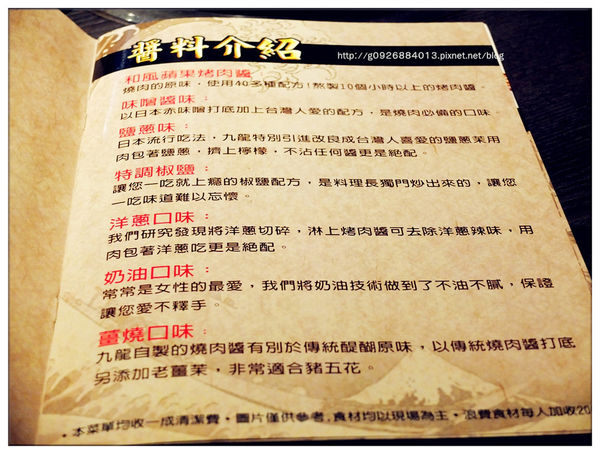 醬料介紹
http://g0926884013.pixnet.net/blog
和風蘋果烤肉醬
燒肉的原味，使用40多種配方!熬製10個小時以上的烤肉醬。
味噌醬味：
以日本赤味噌打底加上台灣人愛的配方，是燒肉必備的口味。
鹽蔥味：
日本流行吃法，九龍特別引進改良成台灣人喜愛的鹽蔥茉用
肉包著鹽蔥，擠上檸檬，不沾任何醬更是絕配。
特調椒鹽：
讓您一吃就上癮的椒鹽配方，是料理長獨門炒出來的，讓您
一吃味道難以忘懷。
洋蔥口味：
我們研究發現將洋蔥切碎，淋上烤肉醬可去除洋蔥辣味，用
肉包著洋蔥吃更是絕配。
奶油口味：
常常是女性的最愛，我們將奶油技術做到了不油不膩，保證
讓您愛不釋手。
薑燒口味：
九龍自製的燒肉醬有別於傳統醍醐原味，以傳統燒肉醬打底
另添加老薑茉，非常適合豬五花。
・本菜單均收一成清潔費・圖片僅供參考，食材均以現場為主・浪費食材每人加收20